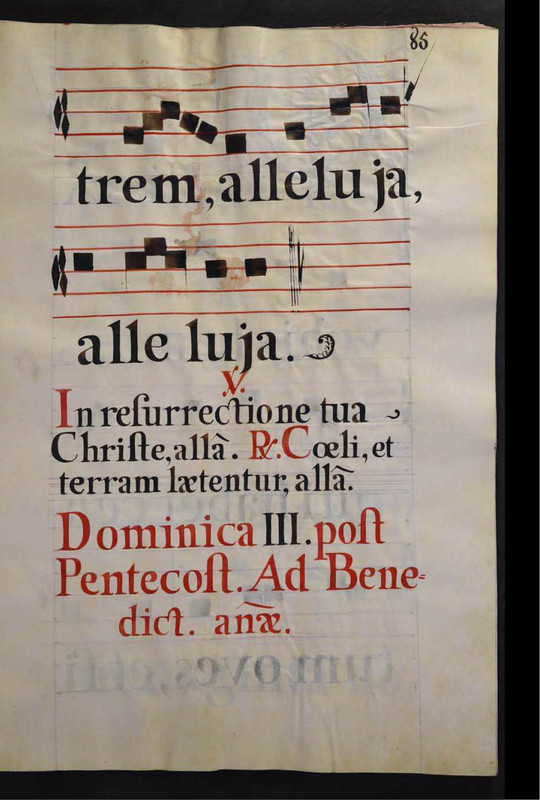 85
trem, alleluja,
alle luja.
℣.
In reſurrectione tua
Chriſte, allã. ℟. Cœli, et
terram lætentur, allã.
Dominica III. poſt
Pentecoſt. Ad Bene-
dict. anæ̃.